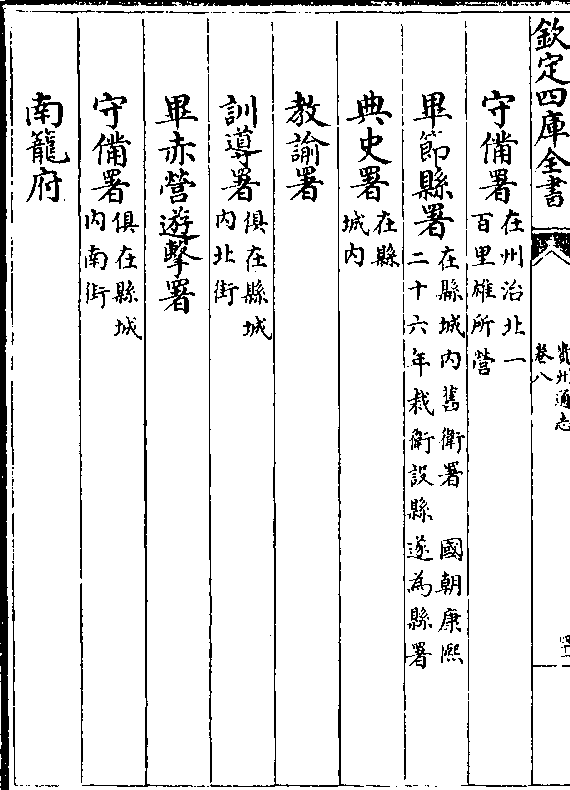 欽定四庫全書
貴州通志
卷八
守備署
在州治北一
百里雄所營
畢節縣署
在縣城內舊衛署　國朝康熙
二十六年裁衛設縣遂為縣署
典史署
在縣
城內
教諭署
訓導署
俱在縣城
內北街
畢赤營遊擊署
守備署
俱在縣城
內南街
南籠府